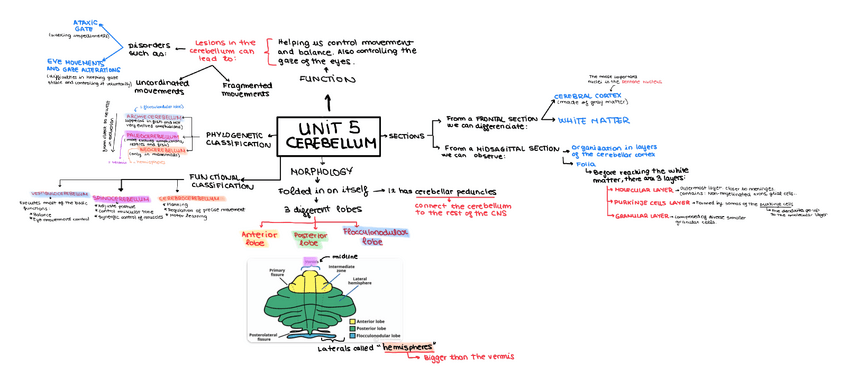 UNIT 5
CEREBELLUM
FUNCTION
Helping us control movement
and balance. Also controlling the
gaze of the eyes.
Lesions in the
cerebellum can
lead to:
Disorders
such as:
ATAXIC
GATE
EYE MOVEMENTS
AND GAZE ALTERATIONS
uncordinated
movements
Fragmented
movements
PHYLOGENETIC
CLASSIFICATION
ARCHICEREBELLUM
PALEOCEREBELLUM
NEOCEREBELLUM
FUNCTIONAL
CLASSIFICATION
VESTIBULOCEREBELLUM
Executes most of the basic
functions:
• Balance
• Eye movement control
SPINOCEREBELLUM
• Adjusts posture
• Control muscular tone
• Synergic control of muscles
CEREBROCEREBELLUM
• Planning
• Regulation of precise movement
• Motor learning
MORPHOLOGY
Folded in on itself
it has cerebellar peduncles
connect the cerebellum
to the rest of the CNS
3 different lobes
Anterior
lobe
Posterior
lobe
Flocculonodular
lobe
midline
Vermis
Primary
fissure
Intermediate
zone
Lateral
hemisphere
Anterior lobe
Posterior lobe
Flocculonodular lobe
Posterolateral
fissure
Laterals called "hemispheres"
Bigger than the vermis
SECTIONS
From a FRONTAL SECTION
we can differenciate:
The most important
nuclei is the dentate nucleus
CEREBRAL CORTEX
(made of gray matter)
WHITE MATTER
From a MIDSAGITTAL SECTION
we can observe:
Organization in layers
of the cerebellar cortex
Folia
Before reaching the white
matter, there are 3 layers:
MOLECULAR LAYER → outermost layer. Closer to meninges.
contains: non-myelinated axons, glial cells.
PURKINJE CELLS LAYER → Formed by somas of the purkinje cells
the dendrites go up
to the molecular layer
GRANULAR LAYER → composed by diverse smaller
granular cells.